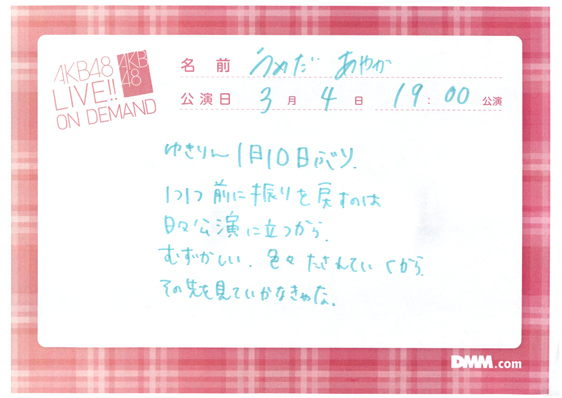 AKB48
LIVE!!
ON DEMAND
AKB
48
名前 うめだ あやか
公演日 3月4日 19:00 公演
ゆきりん 1月10日ぶり.
1つ1つ前に振りを戻すのは
日々公演に立つから.
むずかしい. 色々たされていくから.
その先を見ていかなきゃな.
DMM.com